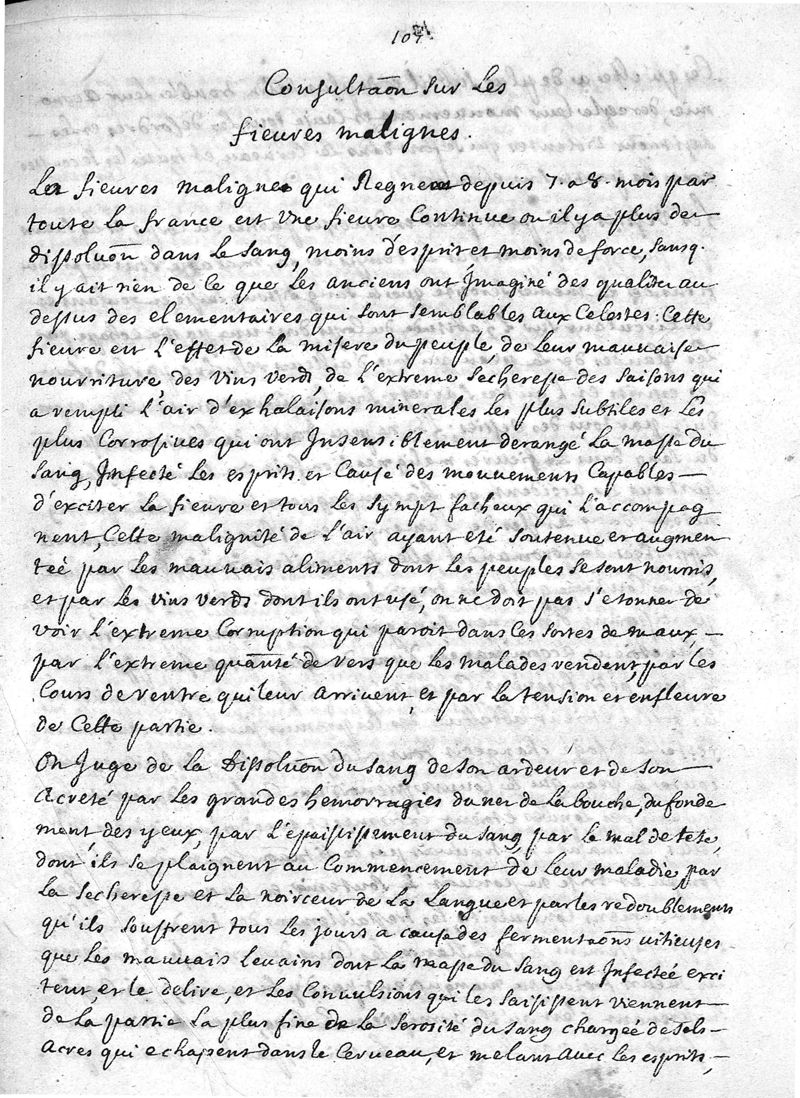 107
Consultaōn sur Les
fievres malignes.
Les fievres malignes qui Regnent depuis 7. a 8. mois par
toute La france est Une fievre Continue ou il y a plus de
dissoluōn dans Le Sang, moins d'esprit et moins de force, Sansq.
il y ait rien de Ce que Les anciens ont Imaginé des qualités au
dessus des elementaires qui sont semblables aux Celestes. Cette
fievre est L'effet de La misere du peuple, de Leur mauvaise
nourriture des Vins Verds, de L'extreme Secheresse des Saisons qui
a rempli L'air d'exhalaisons minerales Les plus Subtiles et Les
plus Corrosives qui ont Insensiblement derangé La masse du
Sang, Infecté Les esprits et Causé des mouvements Capables
d'exciter La fievre et tous Les Sympt facheux qui L'accompag
nent, Cette malignité de L'air ayant eté Soutenue et augmen
teé par Les mauvais aliments dont Les peuples se sont nourris,
et par Les Vins Verds dont ils ont usé, on ne doit pas s'etonner de
voir L'extreme Corruption qui paroit dans Ces Sortes de maux,
par L'extreme quantité de Vers que Les malades rendent, par Les
Cours de Ventre qui Leur arrivent, et par La tension et enfleure
de Cette partie.
On Juge de La Dissoluōn du Sang de Son ardeur et de Son
Acreté par Les grandes hemorragies du nez de La bouche, du fonde
ment, des yeux, par L'épaississement du Sang, par Le mal de tete,
dont ils se plaignent au Commencement de Leur maladie, par
La Secheresse et La noirceur de La Langue et par les redoublements
qu'ils souffrent tous Les jours a cause des fermentaōns vitieuses
que Les mauvais Levains dont La masse du Sang est Infectée exci
tent, et le delire, et Les Convulsions qui les Saisissent viennent
de La partie La plus fine de La Serosité du Sang chargée de Sels
Acres qui echapent dans le Cerveau, et melant avec Les esprits,